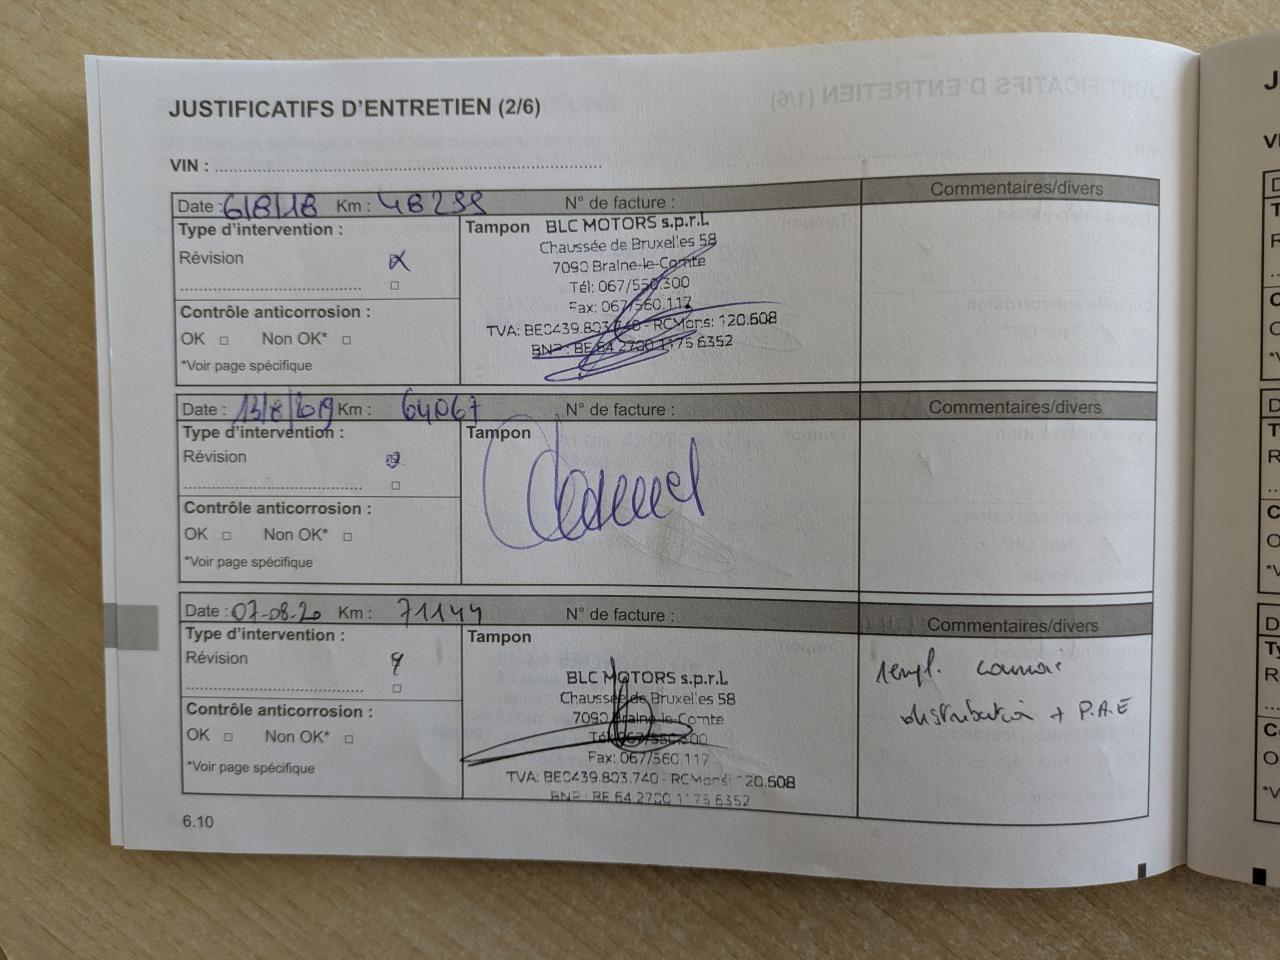 JUSTIFICATIFS D'ENTRETIEN (2/6)
VIN : ........................................................................
Date : 6/8/18 Km : 48299 N° de facture : Commentaires/divers
Type d'intervention :
Révision
Contrôle anticorrosion :
OK □ Non OK* □
*Voir page spécifique
Tampon BLC MOTORS s.p.r.l.
Chaussée de Bruxelles 58
7090 Braine-le-Comte
Tél: 067/550.300
Fax: 067/560.117
TVA: BE0439.803.740 - RCMons: 120.608
BNP : BE 64 2700 1175 6352
Date : 13/8/2019 Km : 64067 N° de facture : Commentaires/divers
Type d'intervention :
Révision
Contrôle anticorrosion :
OK □ Non OK* □
*Voir page spécifique
Tampon
Date : 07-08-20 Km : 71144 N° de facture : Commentaires/divers
Type d'intervention :
Révision
Contrôle anticorrosion :
OK □ Non OK* □
*Voir page spécifique
Tampon
BLC MOTORS s.p.r.l.
Chaussée de Bruxelles 58
7090 Braine-le-Comte
Tél: 067/550.300
Fax: 067/560.117
TVA: BE0439.803.740 - RCMons: 120.608
BNP : BE 64 2700 1175 6352
rempl. courroie
distribution + P.A.E
6.10